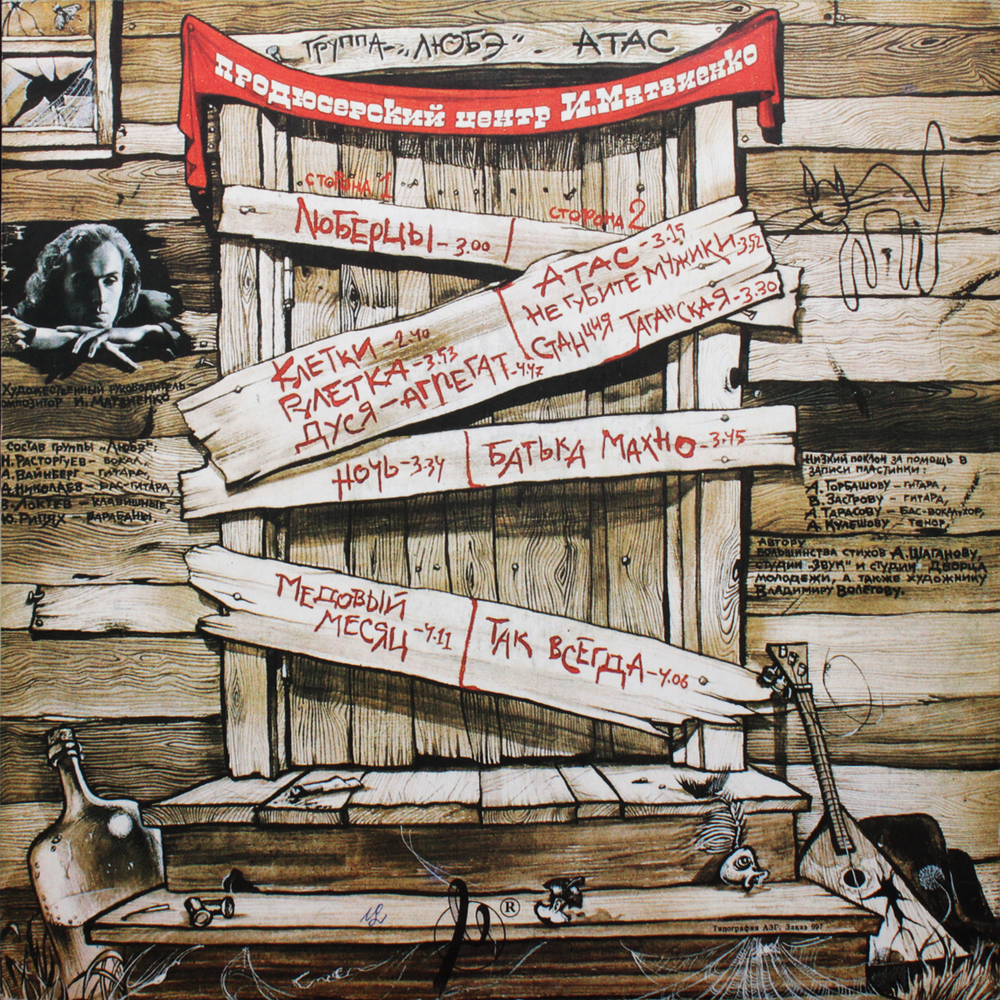 ГРУППА-„ЛЮБЭ“ - АТАС
ПРОДЮСЕРСКИЙ ЦЕНТР И.МАТВИЕНКО
СТОРОНА 1
ЛЮБЕРЦЫ-3.00
КЛЕТКИ-2.40
РУЛЕТКА-3.53
ДУСЯ-АГРЕГАТ-4.47
НОЧЬ-3.34
МЕДОВЫЙ
МЕСЯЦ-4.11
СТОРОНА 2
АТАС-3.15
НЕ ГУБИТЕ МУЖИКИ-3.52
СТАНЦИЯ ТАГАНСКАЯ-3.30
БАТЬКА МАХНО-3.45
ТАК ВСЕГДА-4.06
ХУДОЖЕСТВЕННЫЙ РУКОВОДИТЕЛЬ-
КОМПОЗИТОР И. МАТВИЕНКО
СОСТАВ ГРУППЫ „ЛЮБЭ“:
Н. РАСТОРГУЕВ - ВОКАЛ,
А. ВАЙНБЕРГ - ГИТАРА,
А. НИКОЛАЕВ - БАС-ГИТАРА,
В. ЛОКТЕВ - КЛАВИШНЫЕ,
Ю. РИПЯХ - БАРАБАНЫ.
НИЗКИЙ ПОКЛОН ЗА ПОМОЩЬ В
ЗАПИСИ ПЛАСТИНКИ:
А. ГОРБАШОВУ - ГИТАРА,
В. ЗАСТРОВУ - ГИТАРА,
А. ТАРАСОВУ - БАС-ВОКАЛ, ХОР,
А. КУЛЕШОВУ - ТЕНОР,
АВТОРУ
БОЛЬШИНСТВА СТИХОВ А. ШАГАНОВУ,
СТУДИИ „ЗВУК“ И СТУДИИ ДВОРЦА
МОЛОДЕЖИ, А ТАКЖЕ ХУДОЖНИКУ
ВЛАДИМИРУ ВОЛЕГОВУ.
®
Типография АЗГ. Заказ 997